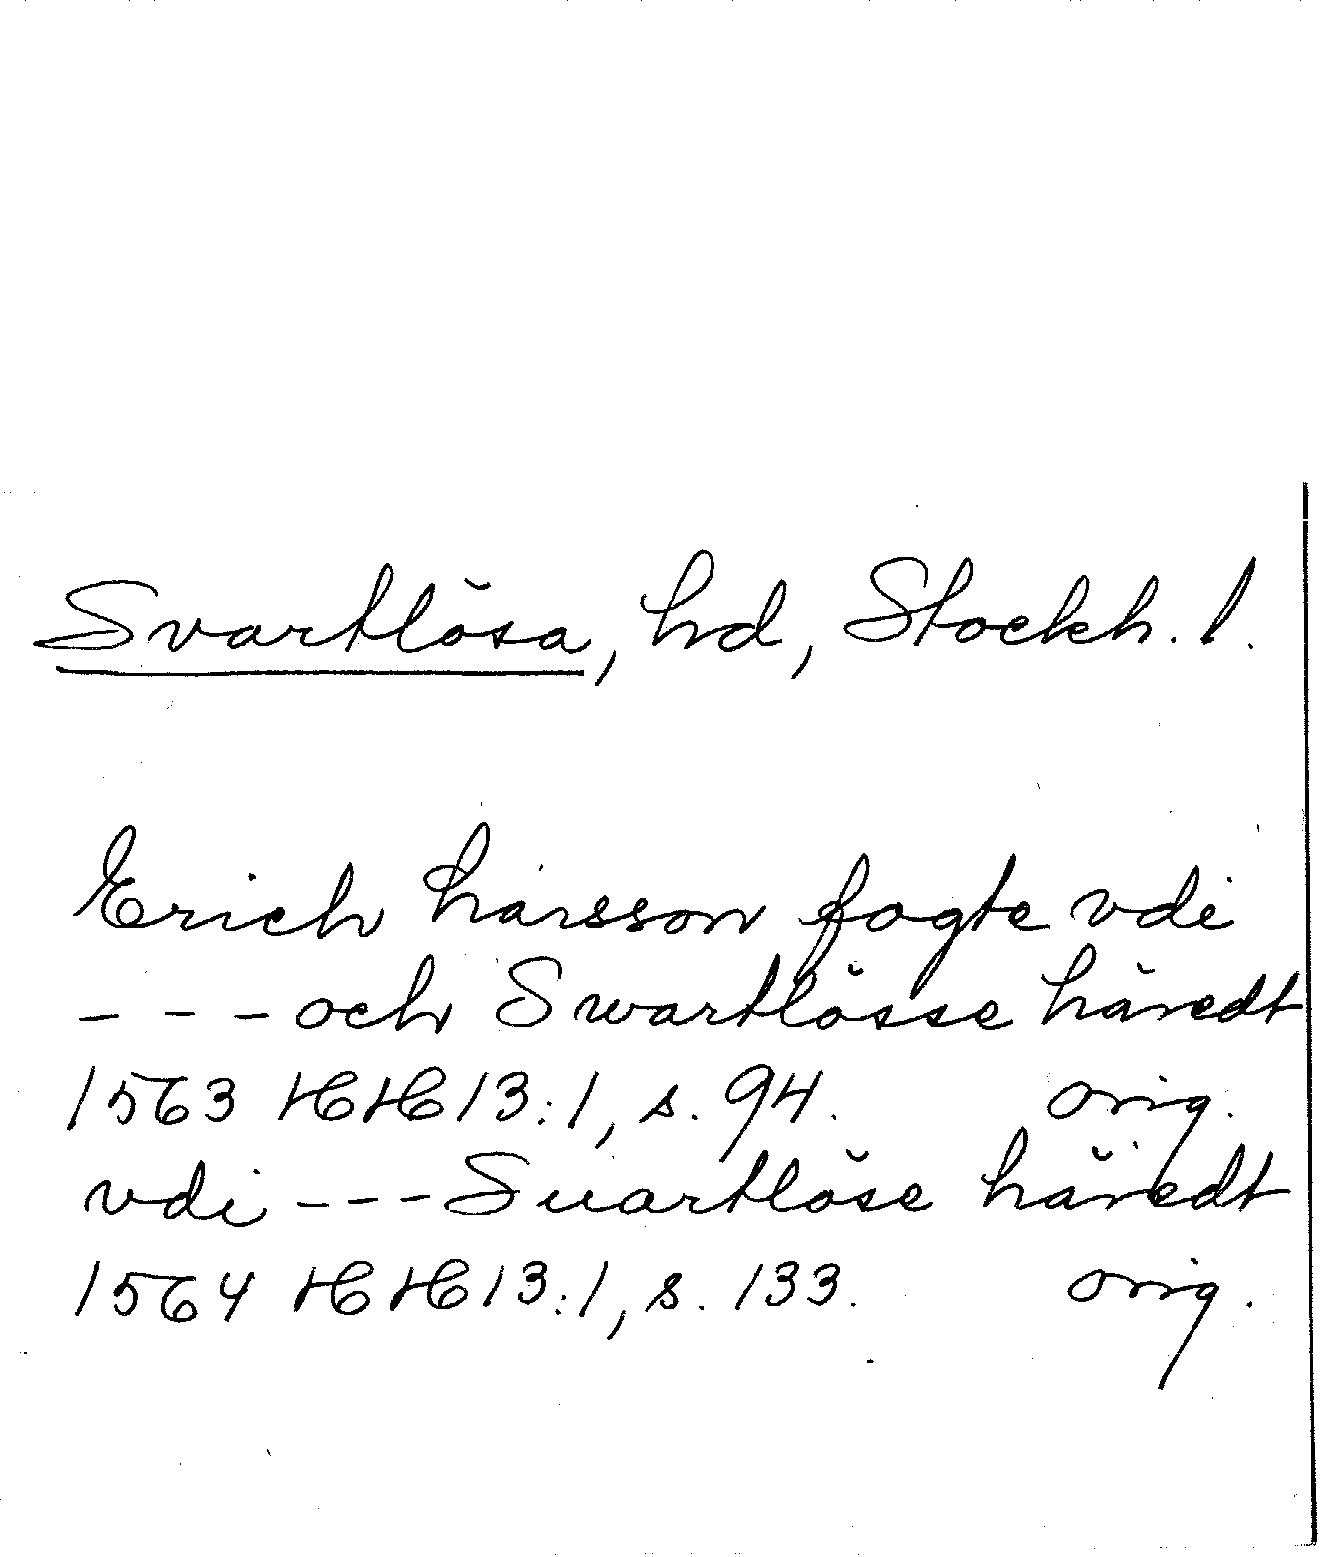 Svartlösa, hd, Stockh. l.
Erich Larsson fogte vdi
--- och Swartlösse häredt
1563 HH 13:1, s. 94. orig.
vdi --- Suartlöse häredt
1564 HH 13:1, s. 133. orig.